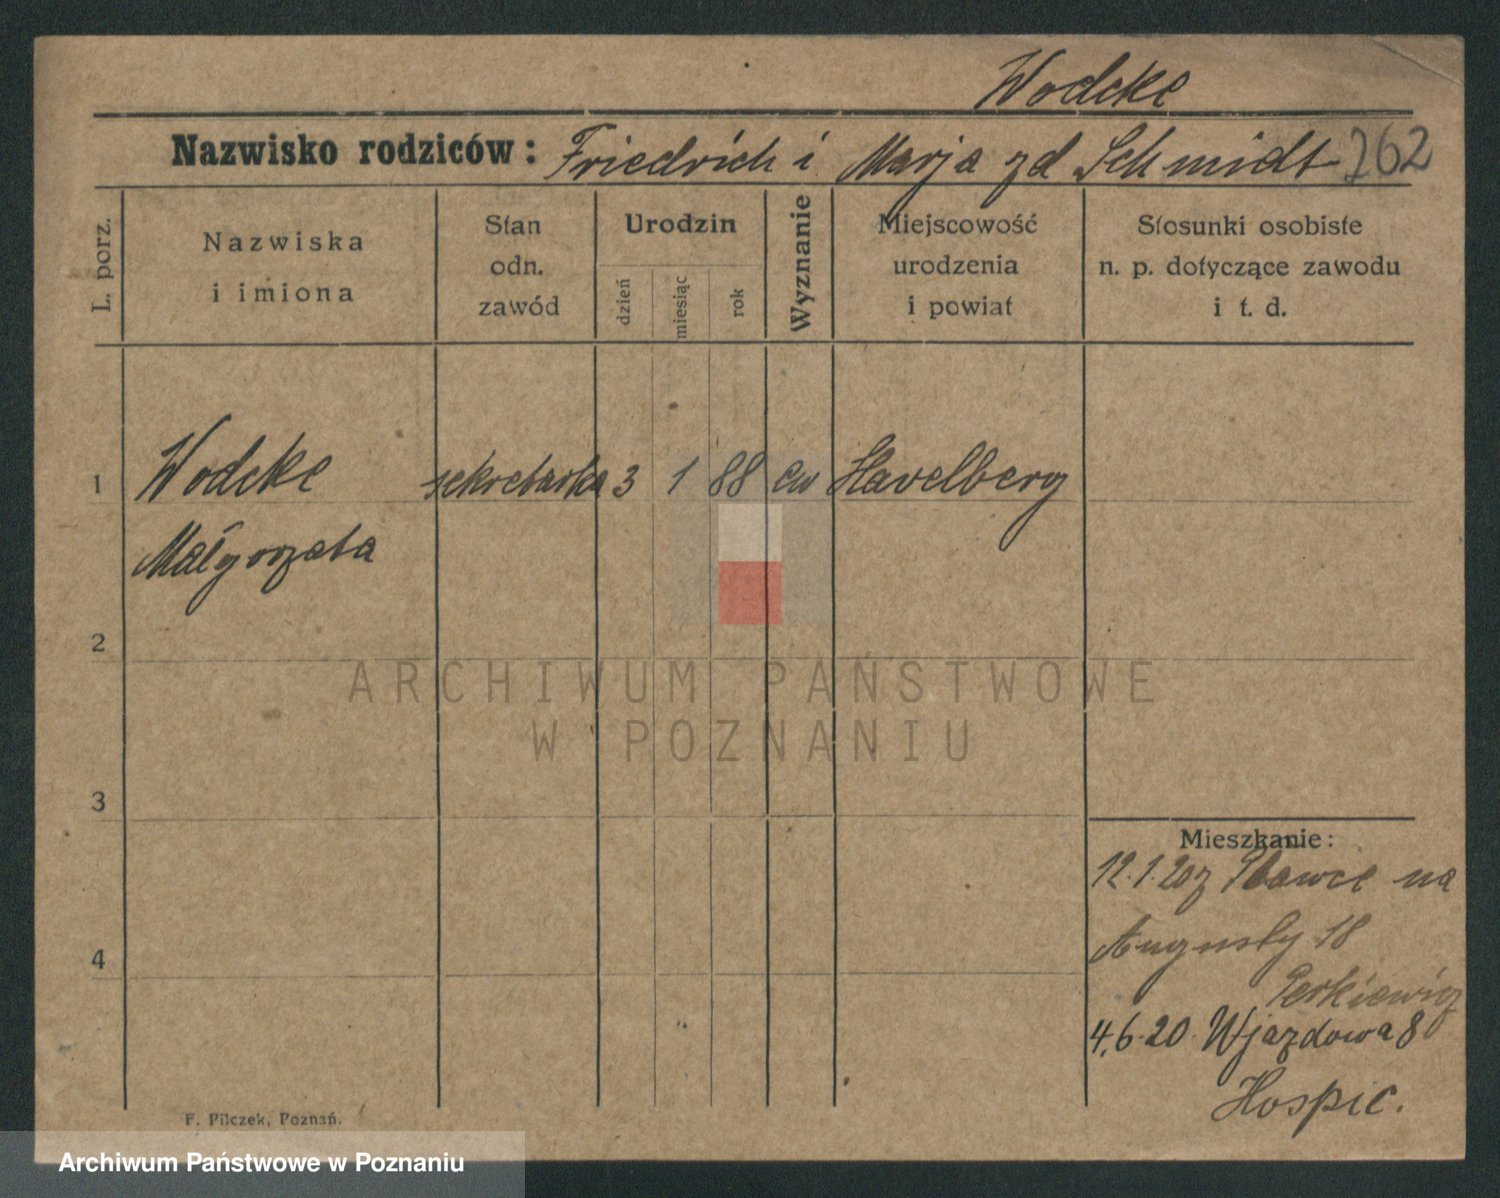 Wodcke
Nazwisko rodziców: Friedrich i Marja zd Schmidt 262
L. porz.
Nazwiska
i imiona
Stan
odn.
zawód
Urodzin
dzień
miesiąc
rok
Wyznanie
Miejscowość
urodzenia
i powiat
Stosunki osobiste
n. p. dotyczące zawodu
i t. d.
1 Wodcke sekretarka 3 1 88 ew Havelberg
Małgorzata
2
3
4
Mieszkanie:
12.1.20 z na
Augusty 18
4.6.20. Wjazdowa 8
Hospic.
F. Pilczek, Poznań.
ARCHIWUM PAŃSTWOWE
W POZNANIU
Archiwum Państwowe w Poznaniu